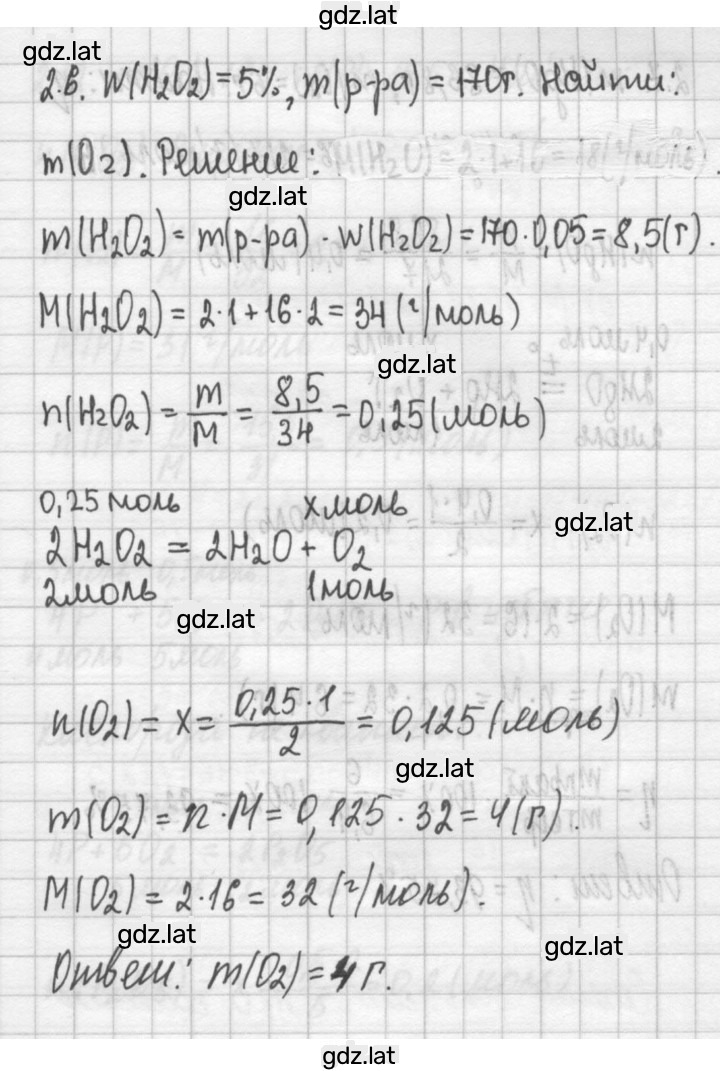 gdz.lat
gdz.lat
2.в. W(H₂O₂)=5%, m(р-ра)=170г. Найти:
m(O₂). Решение:
gdz.lat
m(H₂O₂)= m(р-ра)·W(H₂O₂)=170·0,05=8,5(г).
M(H₂O₂)=2·1+16·2=34(г/моль)
gdz.lat
n(H₂O₂)= m/M = 8,5/34 =0,25(моль)
0,25 моль х моль
gdz.lat
2H₂O₂ = 2H₂O + O₂
2моль 1моль
gdz.lat
n(O₂)= x= 0,25·1/2 = 0,125(моль)
gdz.lat
m(O₂)= n·M=0,125·32=4(г).
M(O₂)=2·16= 32(г/моль).
gdz.lat
gdz.lat
Ответ: m(O₂)=4г.
gdz.lat